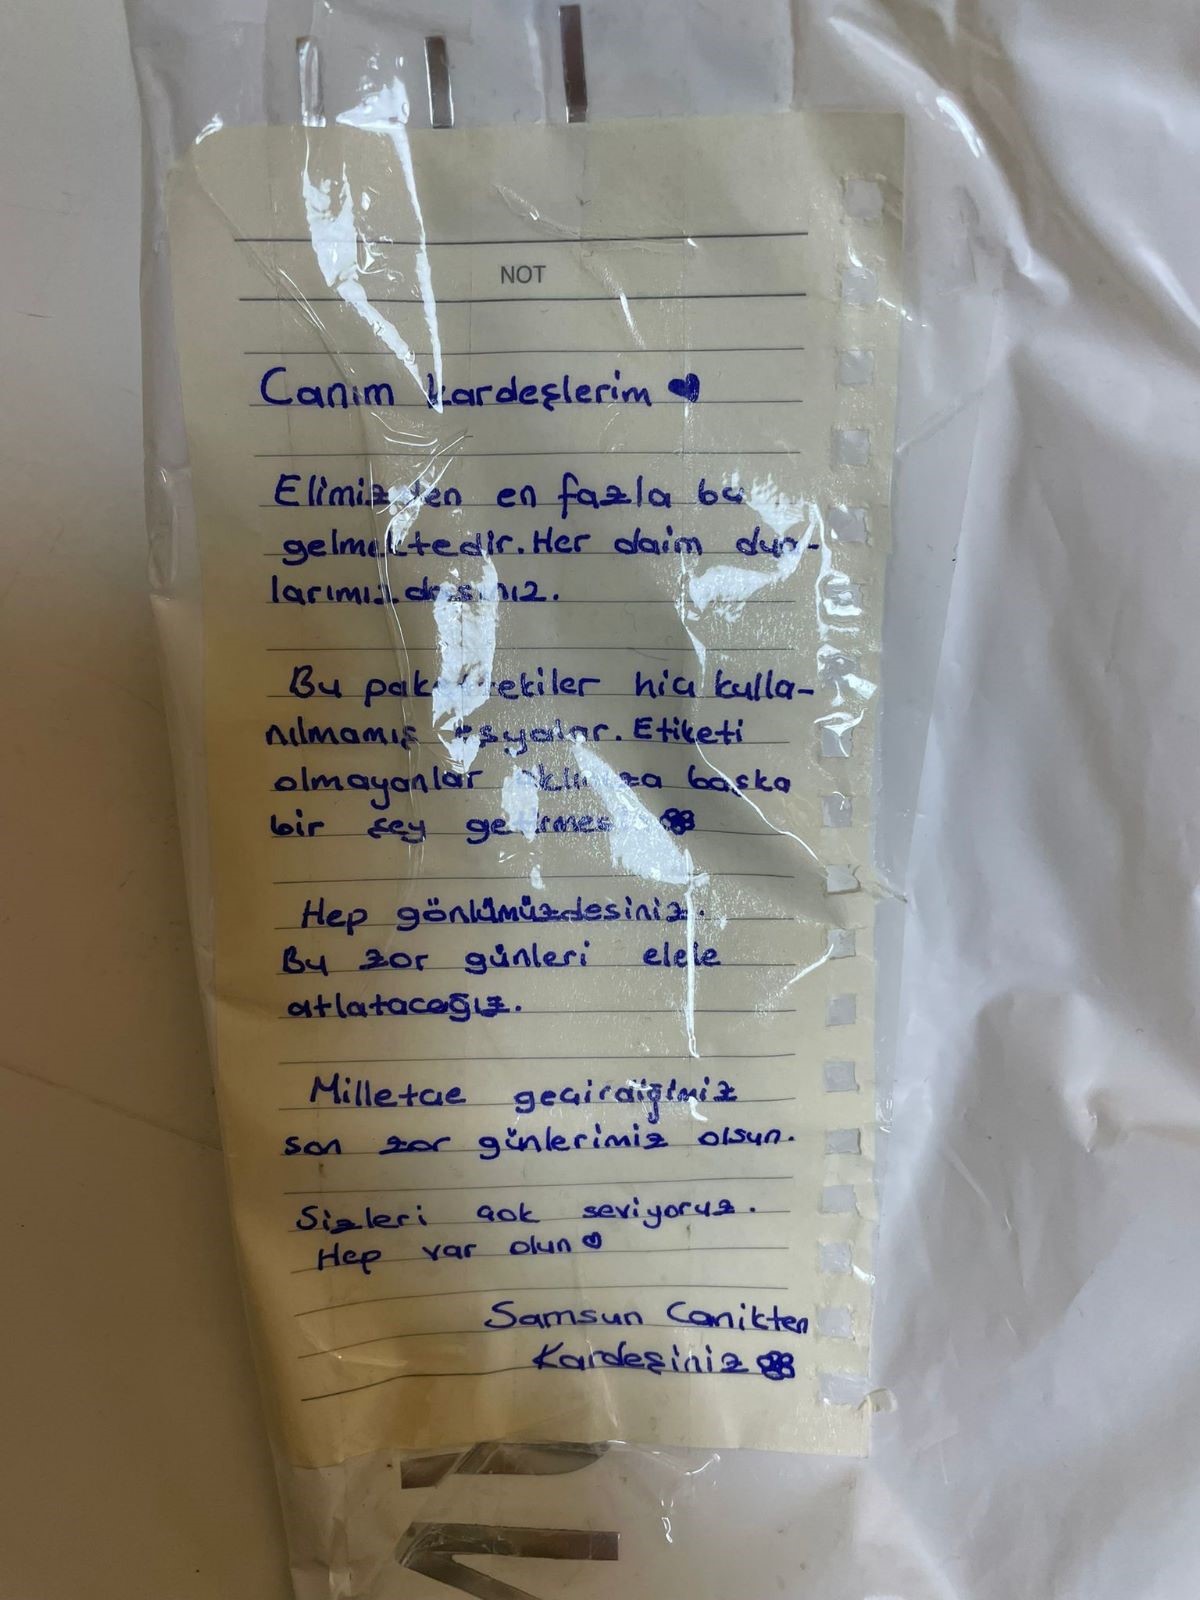 NOT
Canım kardeşlerim
Elimizden en fazla bu
gelmektedir. Her daim dua-
larımızdasınız.
Bu paketdekiler hiç kulla-
nılmamış eşyalar. Etiketi
olmayanlar aklınıza başka
bir şey getirmesin
Hep gönlümüzdesiniz.
Bu zor günleri elele
atlatacağız.
Milletçe geçirdiğimiz
son zor günlerimiz olsun.
Sizleri çok seviyoruz.
Hep var olun
Samsun Canikten
Kardeşiniz